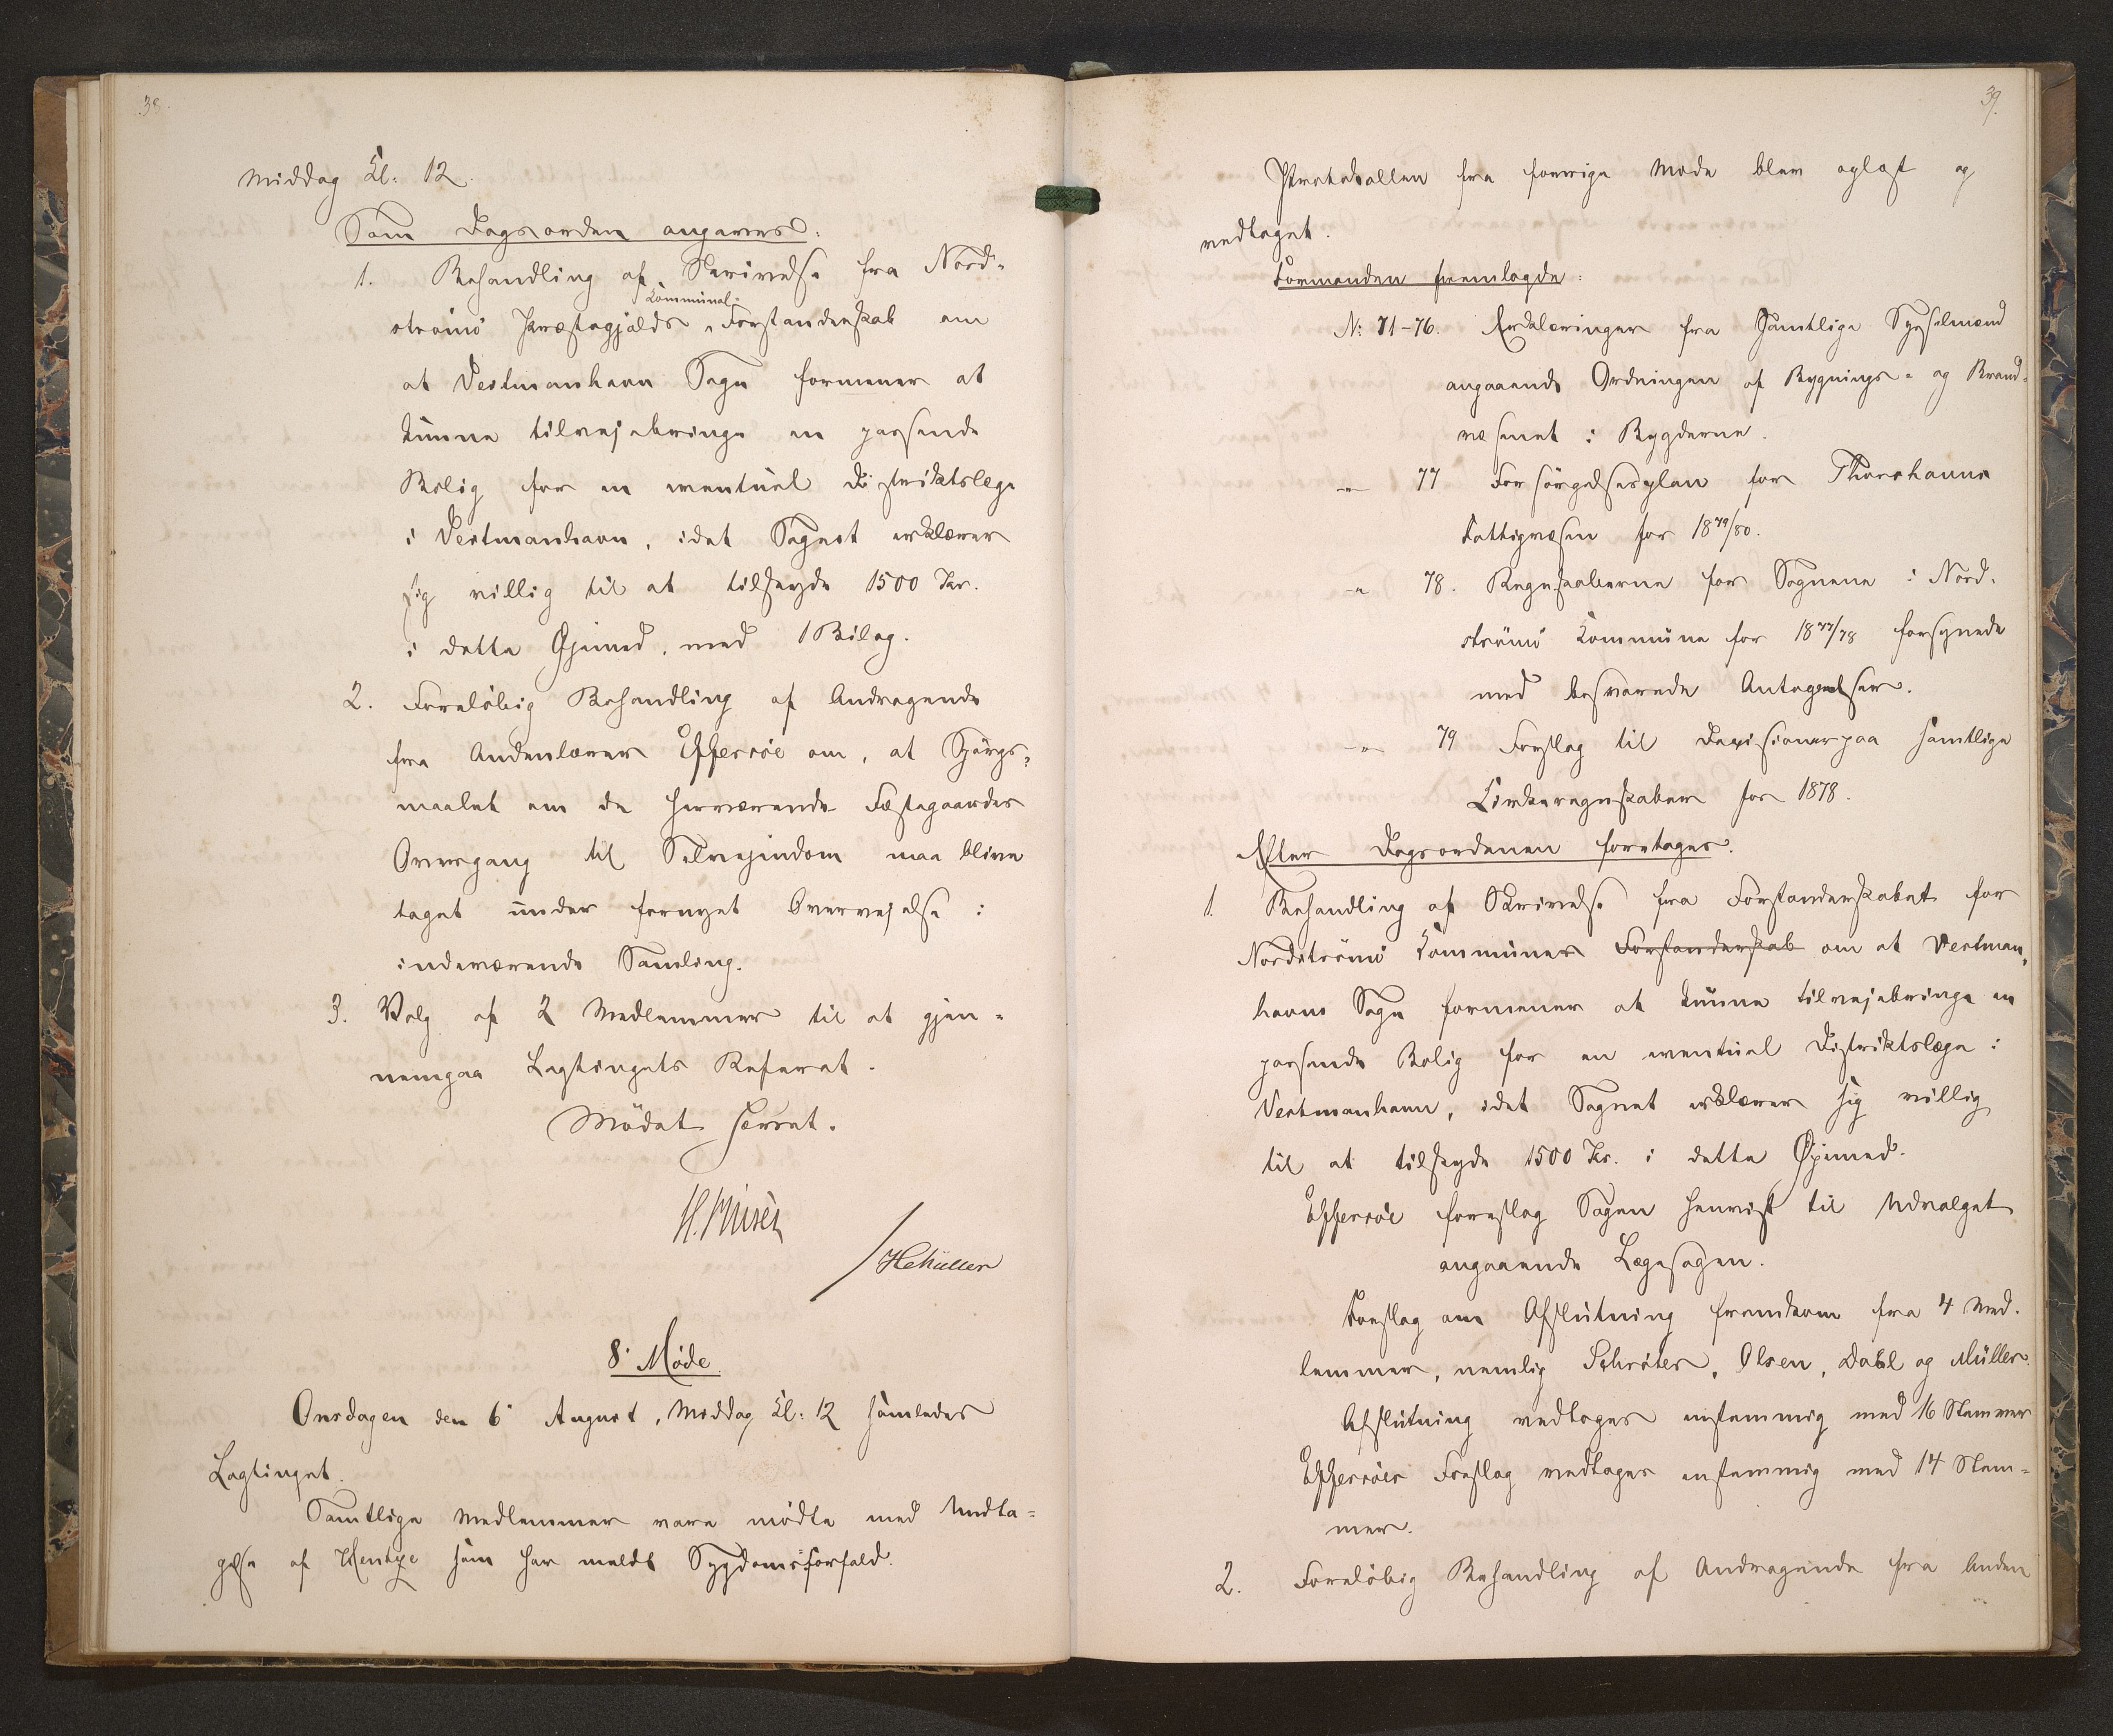 38.
Middag Kl. 12.
Som Dagsorden angaves:
1. Behandling af Skrivelse fra Nord-
strømø Præstegjælds Kommunal- Forstanderskab om
at Vestmanhavn Sogn formener at
kunne tilvejebringe en passende
Bolig for en eventuel Distriktslæge
i Vestmanhavn, idet Sognet erklærer
sig villig til at tilskyde 1500 Kr.
i dette Øjemed, med 1 Bilag.
2. Foreløbig Behandling af Andragende
fra Andenlærer Effersøe om, at Spørgs-
maalet om de herværende Fæstegaardes
Overgang til Selvejendom maa blive
taget under fornyet Overvejelse i
indeværende Samling.
3. Valg af 2 Medlemmer til at gjen-
nemgaa Lagtingets Referat.
Mødet hævet.
HMüller
8' Møde.
Onsdagen den 6' August, Middag Kl: 12 samledes
Lagtinget.
Samtlige Medlemmer vare mødte med Undta-
gelse af Hentze som har meldt Sygdomsforfald.
39.
Protokollen fra forrige Møde blev oplæst og
vedtaget.
Formanden fremlagde:
No: 71-76. Erklæringer fra samtlige Sysselmænd
angaaende Ordningen af Bygnings- og Brand-
væsenet i Bygderne.
-"- 77 Forsørgelsesplan for Thorshavns
Fattigvæsen for 1879/80.
-"- 78. Regnskaberne for Sognene i Nord-
strømø Kommune for 1877/78 forsynede
med besvarede Antegnelser.
-"- 79 Forslag til Decisioner paa samtlige
Kirkeregnskaber for 1878.
Efter Dagsordenen foretages.
1. Behandling af Skrivelse fra Forstanderskabet for
Nordstrømø Kommunes Forstanderskab om at Vestman-
havns Sogn formener at kunne tilvejebringe en
passende Bolig for en eventuel Distriktslæge i
Vestmanhavn, idet Sognet erklærer sig villig
til at tilskyde 1500 Kr. i dette Øjemed.
Effersøe foreslog Sagen henvist til Udvalget
angaaende Lægesagen.
Forslag om Afslutning fremkom fra 4 Med-
lemmer, nemlig Schrøter, Olsen, Dahl og Müller.
Afslutning vedtoges enstemmig med 16 Stemmer
Effersøes Forslag vedtoges enstemmig med 14 Stem-
mer.
2. Foreløbig Behandling af Andragende fra Anden